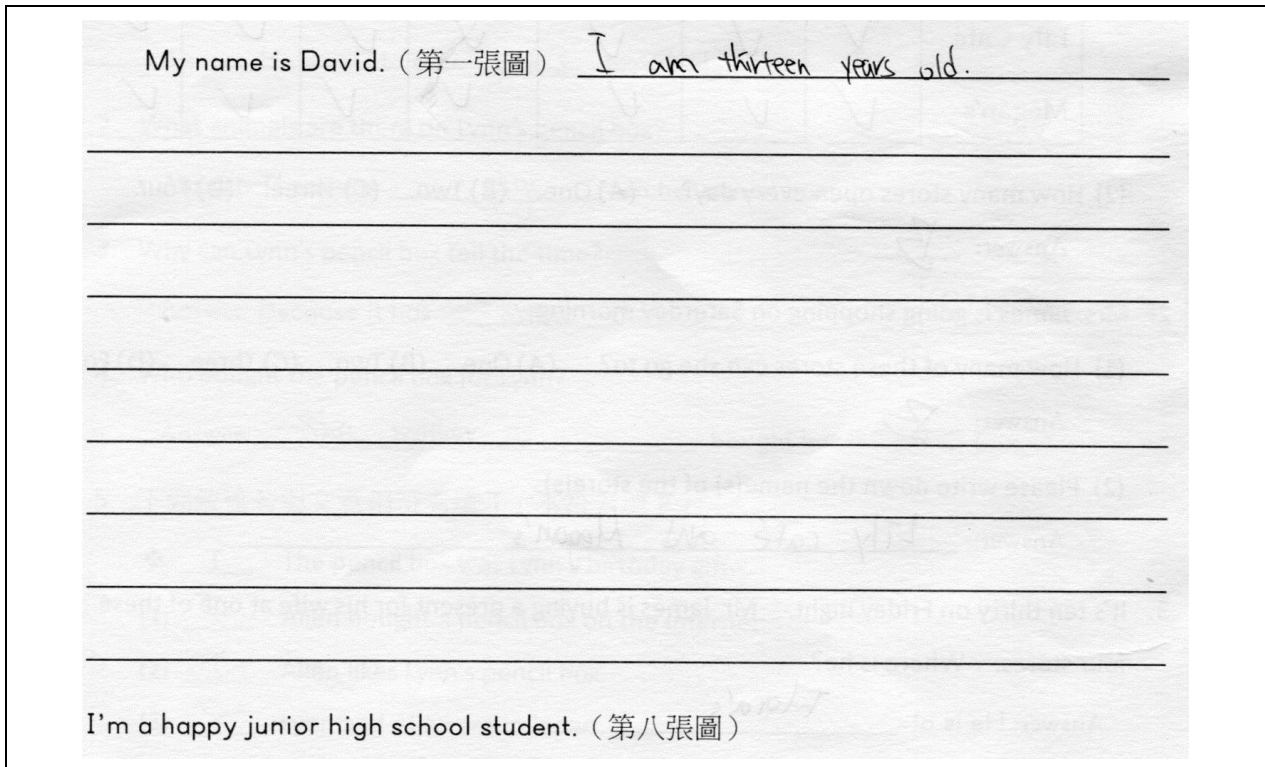 My name is David.（第一張圖） I am thirteen years old.
I'm a happy junior high school student.（第八張圖）